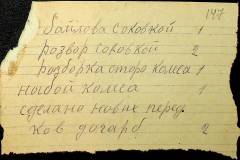 147
байлова соковкой 1
розвор соковкой 2
розборка старо комса 1
новой комса 1
сделано новых перед
ков догарб 2